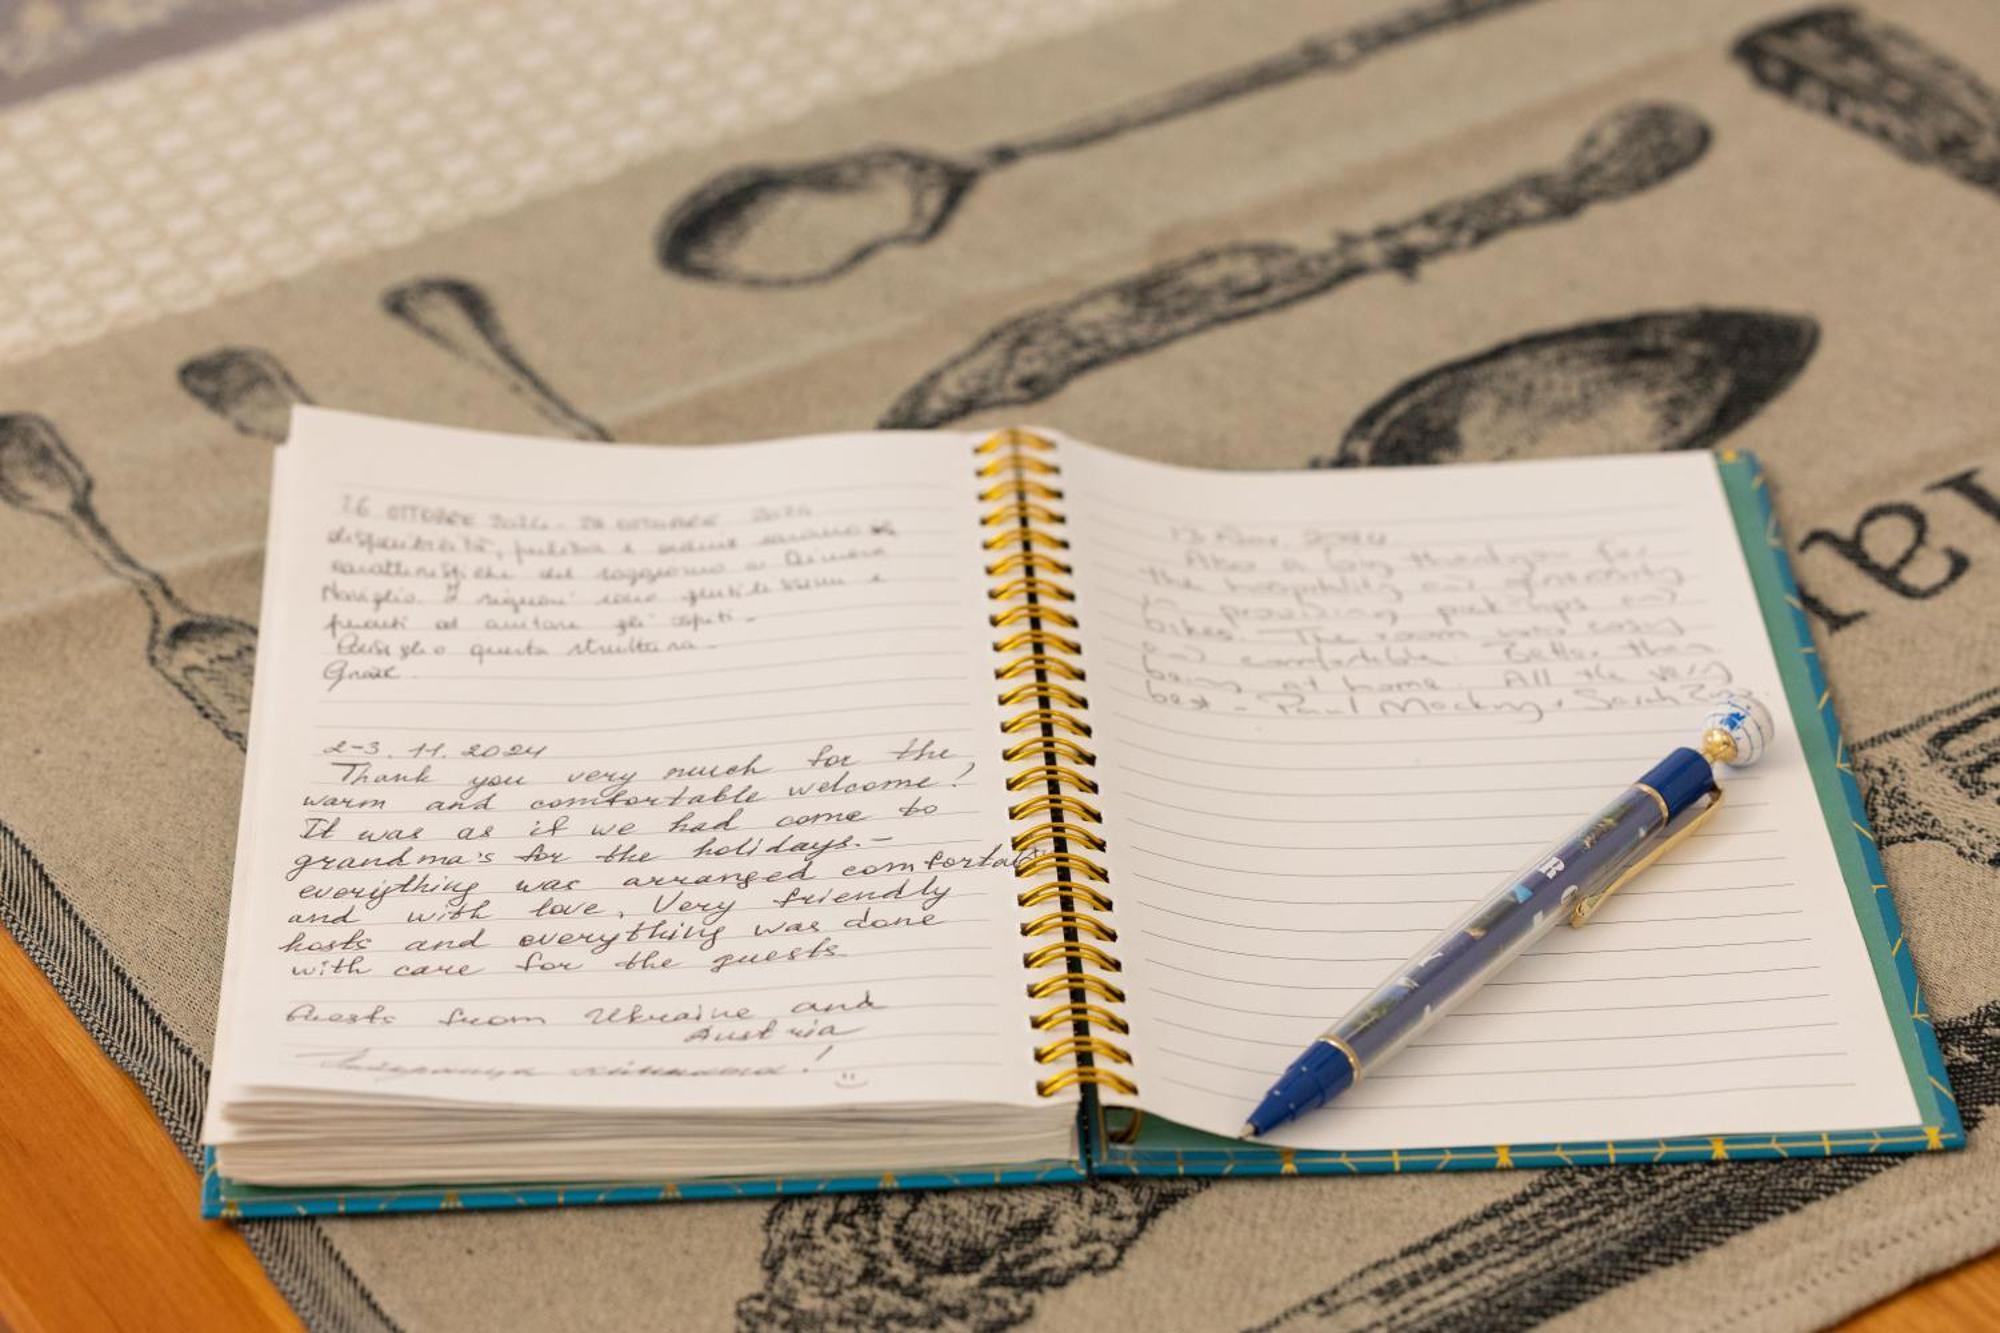 26 OTTOBRE 2024 - 28 OTTOBRE 2024
disponibilità, pulizia e ordine saranno le
caratteristiche del soggiorno a Dimora
Naviglio. I signori sono gentilissimi e
pronti ad aiutare gli ospiti.
Consiglio questa struttura.
Grazie.
2-3. 11. 2024
Thank you very much for the
warm and comfortable welcome!
It was as if we had come to
grandma's for the holidays. -
everything was arranged comfortab
and with love. Very friendly
hosts and everything was done
with care for the guests
Guests from Ukraine and
Austria
13 Nov 2024
Also a big thankyou for
the hospitality and generosity
in providing pick-ups and
bikes. The room was cosy
and comfortable. Better than
being at home. All the very
best - Paul Mockny + Sarah